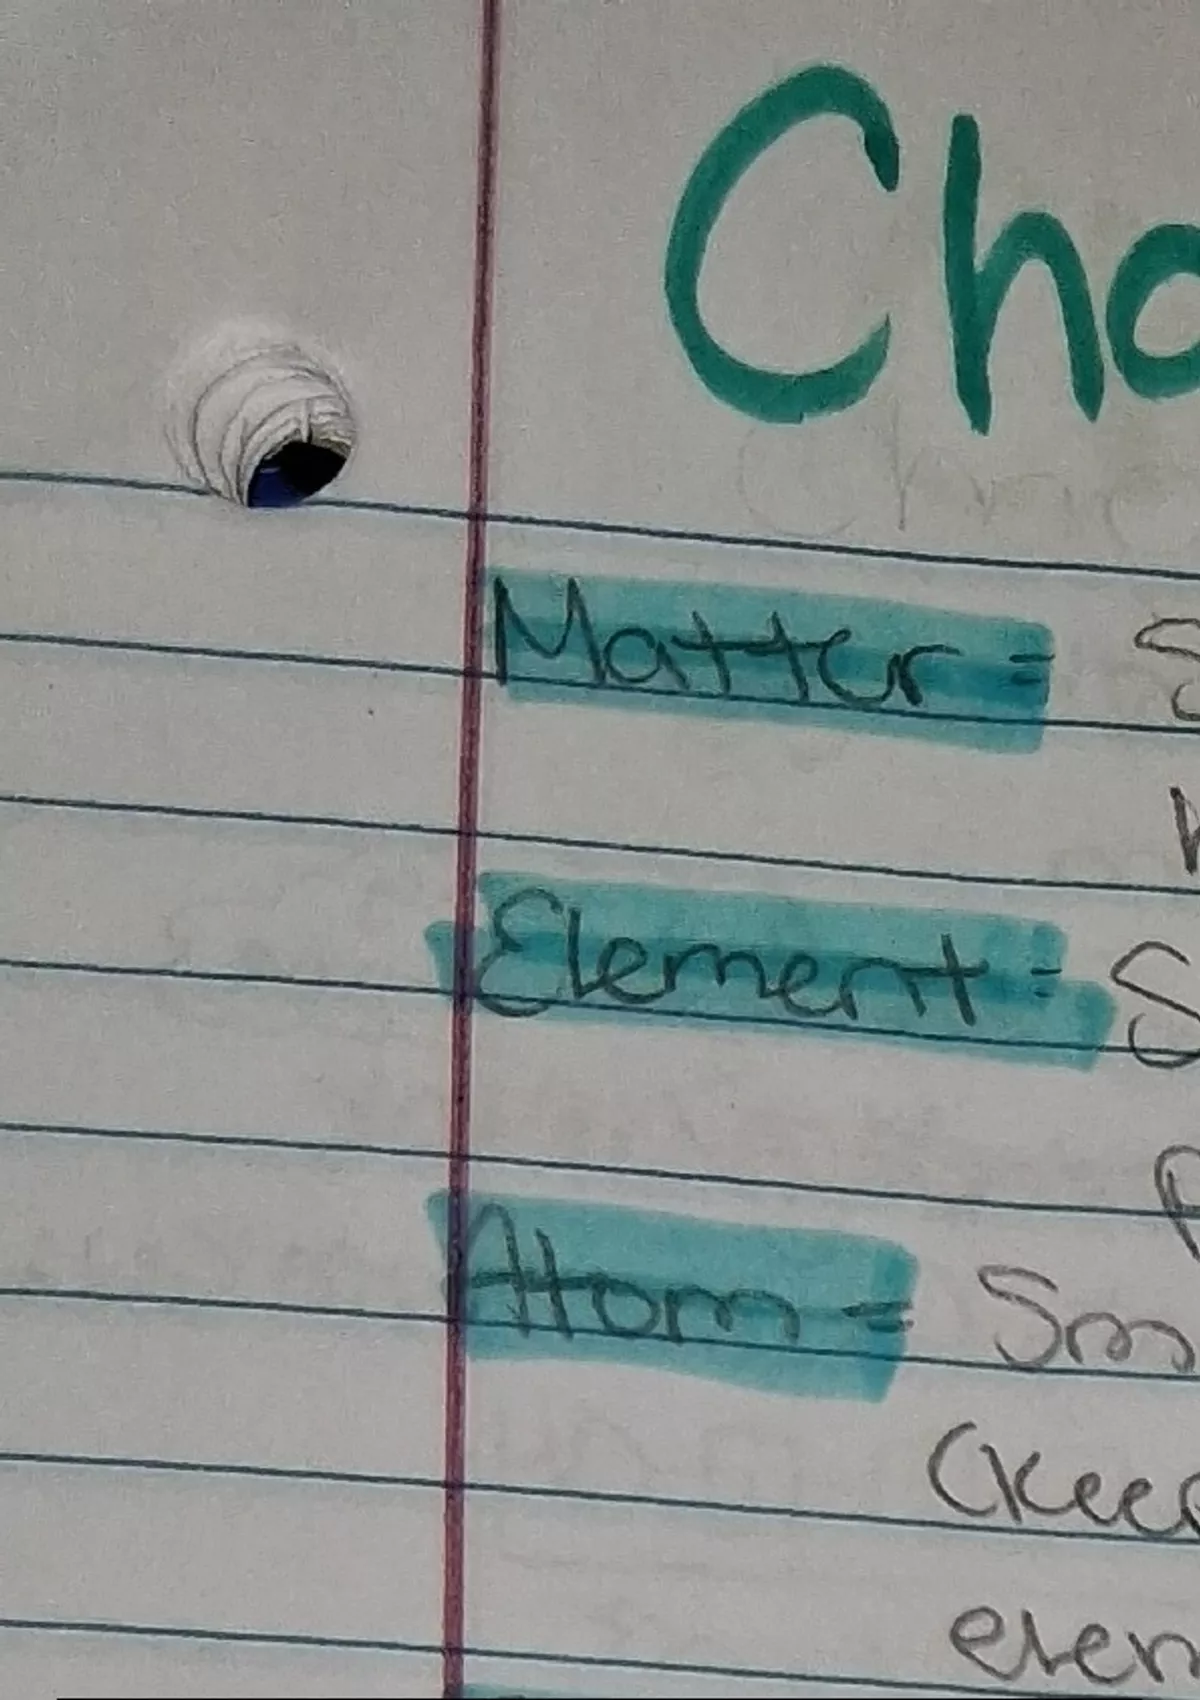 Cha
Matter = S
Element = S
Atom = Sm
(Keep
elem